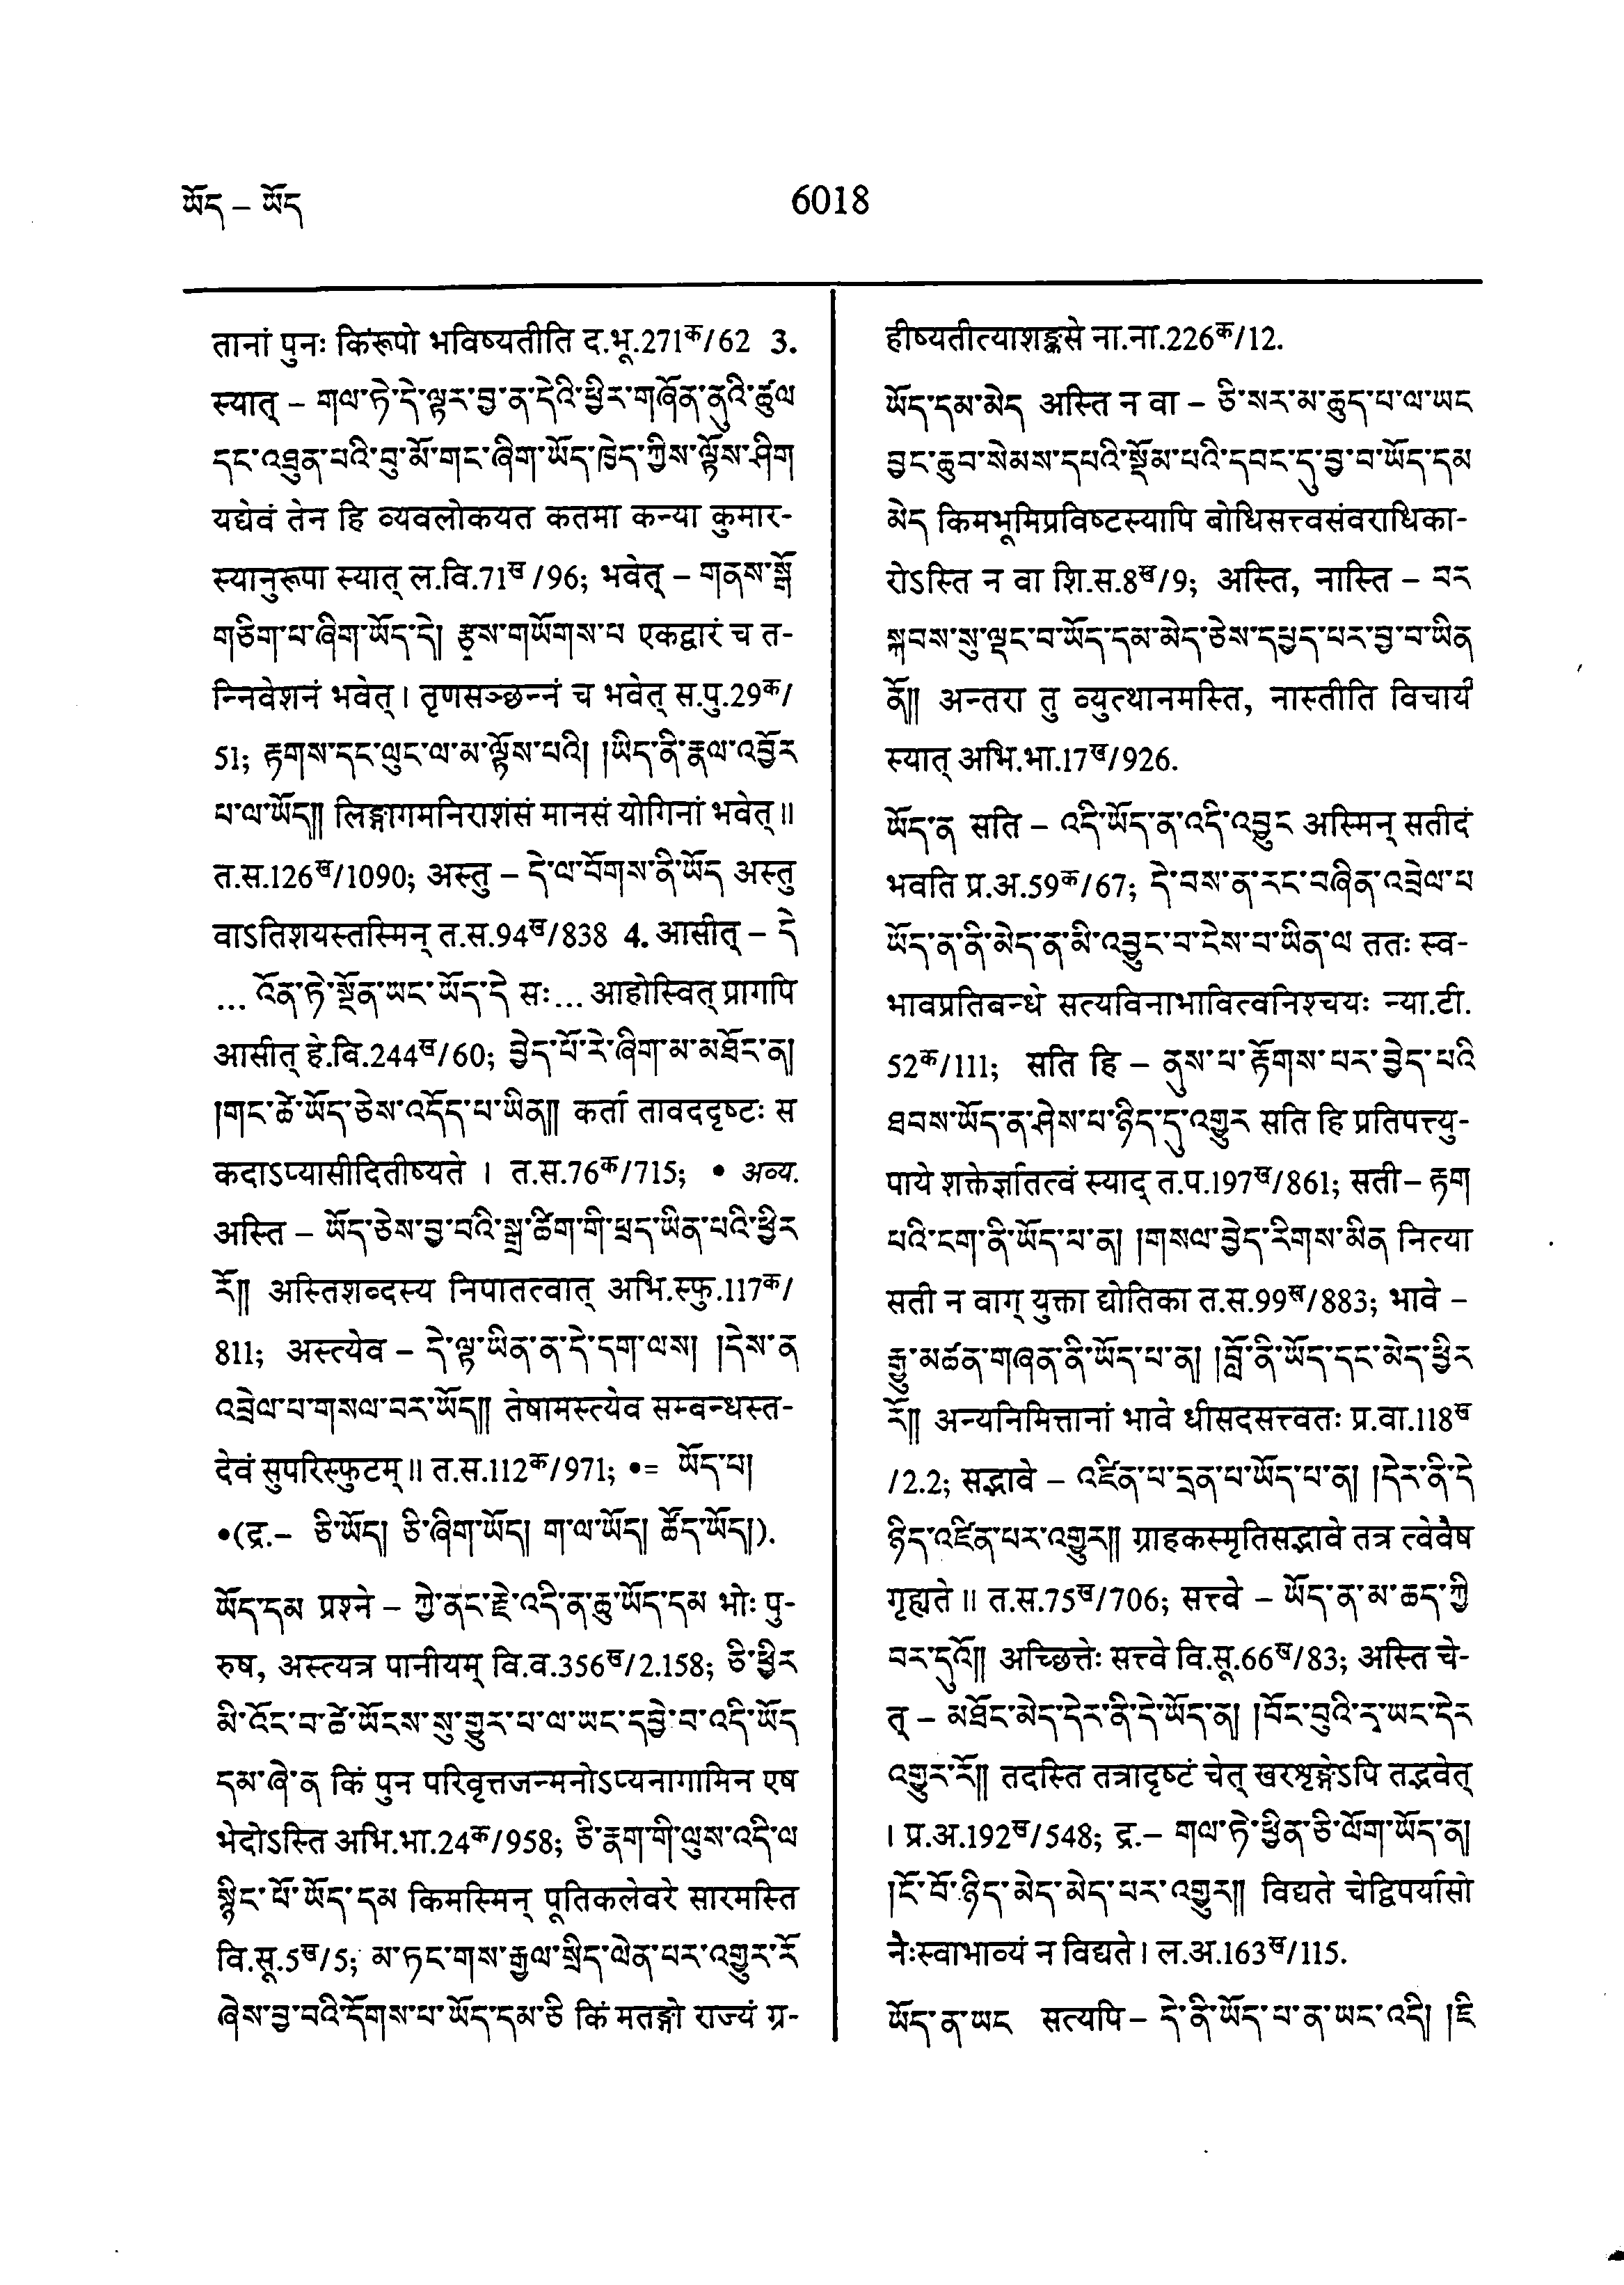 ཡོད – ཡོད
6018
तानां पुनः किंरूपो भविष्यतीति द.भू.271क/62 3.
स्यात् – གལ་ཏེ་དེ་ལྟར་བྱ་ན་དེའི་ཕྱིར་གཞོན་ནུའི་ཚུལ
དང་འཐུན་པའི་བུ་མོ་གང་ཞིག་ཡོད་ཁྱེད་ཀྱིས་ལྟོས་ཤིག
यद्येवं तेन हि व्यवलोकयत कतमा कन्या कुमार-
स्यानुरूपा स्यात् ल.वि.71ख/96; भवेत् – གནས་སྒོ
གཅིག་པ་ཞིག་ཡོད་དེ། རྩྭས་གཡོགས་པ एकद्वारं च त-
न्निवेशनं भवेत्। तृणसञ्छन्नं च भवेत् स.पु.29क/
51; རྟགས་དང་ལུང་ལ་མ་ལྟོས་པའི། །ཡིད་ནི་རྣལ་འབྱོར
པ་ལ་ཡོད༎ लिङ्गागमनिराशंसं मानसं योगिनां भवेत्॥
त.स.126ख/1090; अस्तु – དེ་ལ་བོགས་ནི་ཡོད अस्तु
वाऽतिशयस्तस्मिन् त.स.94ख/838 4. आसीत् – དེ
... འོན་ཏེ་སྔོན་ཡང་ཡོད་དེ सः... आहोस्वित् प्रागपि
आसीत् हे.वि.244ख/60; བྱེད་པོ་རེ་ཞིག་མ་མཐོང་ན།
།གང་ཚེ་ཡོད་ཅེས་འདོད་པ་ཡིན༎ कर्ता तावददृष्टः स
कदाऽप्यासीदितीष्यते । त.स.76क/715; • अव्य.
अस्ति – ཡོད་ཅེས་བྱ་བའི་སྒྲ་ཚིག་གི་ཕྲད་ཡིན་པའི་ཕྱིར
རོ༎ अस्तिशब्दस्य निपातत्वात् अभि.स्फु.117क/
811; अस्त्येव – དེ་ལྟ་ཡིན་ན་དེ་དག་ལས། །དེས་ན
འབྲེལ་པ་གསལ་བར་ཡོད༎ तेषामस्त्येव सम्बन्धस्त-
देवं सुपरिस्फुटम्॥ त.स.112क/971; •= ཡོད་པ།
•(द्र.– ཅི་ཡོད། ཅི་ཞིག་ཡོད། ག་ལ་ཡོད། ཚོད་ཡོད།).
ཡོད་དམ प्रश्ने – ཀྱེ་ནང་རྗེ་འདི་ན་ཆུ་ཡོད་དམ भोः पु-
रुष, अस्त्यत्र पानीयम् वि.व.356ख/2.158; ཅི་ཕྱིར
མི་འོང་བ་ཚེ་ཡོངས་སུ་གྱུར་པ་ལ་ཡང་དབྱེ་བ་འདི་ཡོད
དམ་ཞེ་ན किं पुन परिवृत्तजन्मनोऽप्यनागामिन एष
भेदोऽस्ति अभि.भा.24क/958; ཅི་རྣག་གི་ལུས་འདི་ལ
སྙིང་པོ་ཡོད་དམ किमस्मिन् पूतिकलेवरे सारमस्ति
वि.सू.5ख/5; མ་ཏང་གས་རྒྱལ་སྲིད་ལེན་པར་འགྱུར་རོ
ཞེས་བྱ་བའི་དོགས་པ་ཡོད་དམ་ཅི किं मतङ्गो राज्यं ग्र-
हीष्यतीत्याशङ्कसे ना.ना.226क/12.
ཡོད་དམ་མེད अस्ति न वा – ཅི་སར་མ་ཆུད་པ་ལ་ཡང
བྱང་ཆུབ་སེམས་དཔའི་སྡོམ་པའི་དབང་དུ་བྱ་བ་ཡོད་དམ
མེད किमभूमिप्रविष्टस्यापि बोधिसत्त्वसंवराधिका-
रोऽस्ति न वा शि.स.8ख/9; अस्ति, नास्ति – བར
སྐབས་སུ་ལྡང་བ་ཡོད་དམ་མེད་ཅེས་དཔྱད་པར་བྱ་བ་ཡིན
ནོ༎ अन्तरा तु व्युत्थानमस्ति, नास्तीति विचार्यं
स्यात् अभि.भा.17ख/926.
ཡོད་ན सति – འདི་ཡོད་ན་འདི་འབྱུང अस्मिन् सतीदं
भवति प्र.अ.59क/67; དེ་བས་ན་རང་བཞིན་འབྲེལ་པ
ཡོད་ན་ནི་མེད་ན་མི་འབྱུང་བ་ངེས་པ་ཡིན་ལ ततः स्व-
भावप्रतिबन्धे सत्यविनाभावित्वनिश्चयः न्या.टी.
52क/111; सति हि – ནུས་པ་རྟོགས་པར་བྱེད་པའི
ཐབས་ཡོད་ན་ཤེས་པ་ཉིད་དུ་འགྱུར सति हि प्रतिपत्त्यु-
पाये शक्तेर्ज्ञातत्वं स्याद् त.प.197ख/861; सती– རྟག
པའི་ངག་ནི་ཡོད་པ་ན། །གསལ་བྱེད་རིགས་མིན नित्या
सती न वाग् युक्ता द्योतिका त.स.99ख/883; भावे –
རྒྱུ་མཚན་གཞན་ནི་ཡོད་པ་ན། །བློ་ནི་ཡོད་དང་མེད་ཕྱིར
རོ༎ अन्यनिमित्तानां भावे धीसदसत्त्वतः प्र.वा.118ख
/2.2; सद्भावे – འཛིན་པ་དྲན་པ་ཡོད་པ་ན། །དེར་ནི་དེ
ཉིད་འཛིན་པར་འགྱུར༎ ग्राहकस्मृतिसद्भावे तत्र त्वेवैष
गृह्यते॥ त.स.75ख/706; सत्त्वे – ཡོད་ན་མ་ཆད་ཀྱི
བར་དུའོ༎ अच्छित्तेः सत्त्वे वि.सू.66ख/83; अस्ति चे-
त् – མཐོང་མེད་དེར་ནི་དེ་ཡོད་ན། །བོང་བུའི་རྭ་ཡང་དེར
འགྱུར་རོ༎ तदस्ति तत्रादृष्टं चेत् खरशृङ्गेऽपि तद्भवेत्
। प्र.अ.192ख/548; द्र.– གལ་ཏེ་ཕྱིན་ཅི་ལོག་ཡོད་ན།
།ངོ་བོ་ཉིད་མེད་མེད་པར་འགྱུར༎ विद्यते चेद्विपर्यासो
नैःस्वाभाव्यं न विद्यते। ल.अ.163ख/115.
ཡོད་ན་ཡང सत्यपि – དེ་ནི་ཡོད་པ་ན་ཡང་འདི། །ཇི